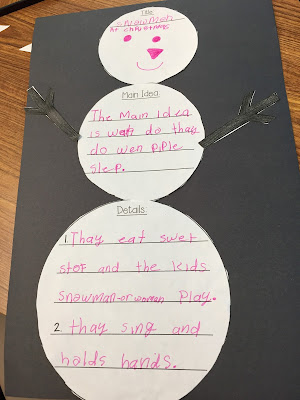 Title:
Snowman
At CHRISTMAS
Main Idea:
The Main iden
is wat do thay
do wen piple
slep.
Details:
1. Thay eat swet
stof and the kids
snowman-or women play.
2. thay sing and
holds hands.